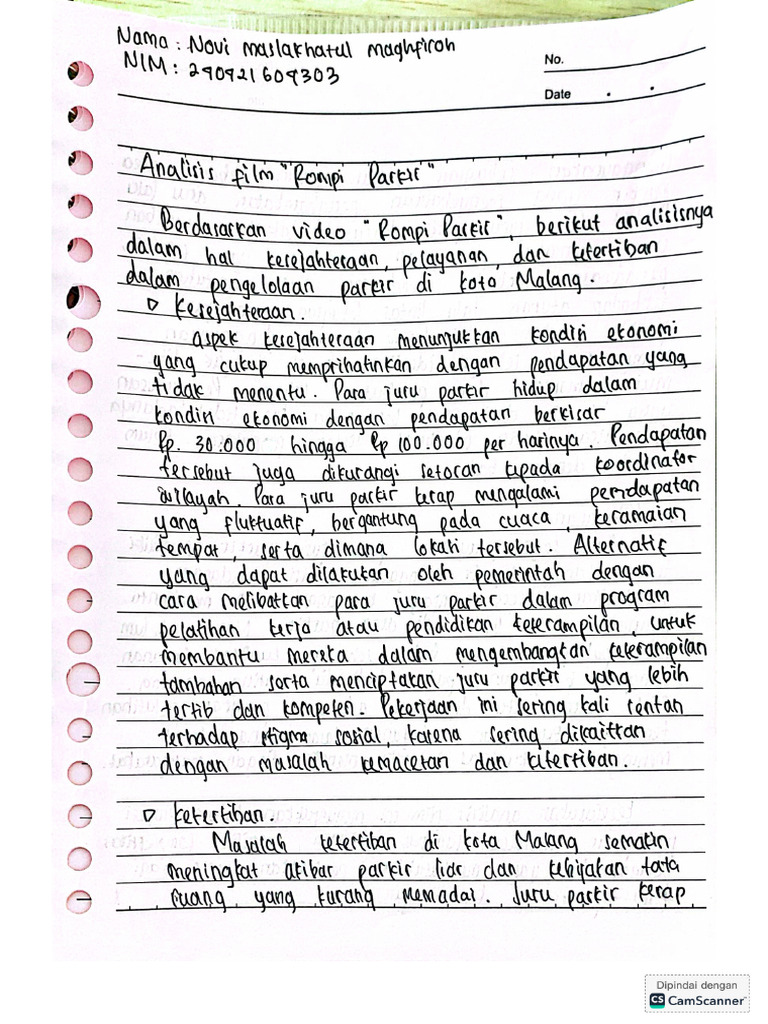 Nama : Novi maslakhatul maghfiroh
NIM : 240421604303
No.
Date
Analisis film "Rompi Parkir"
Berdasarkan video "Rompi Parkir", berikut analisisnya
dalam hal kesejahteraan, pelayanan, dan ketertiban
dalam pengelolaan parkir di kota Malang.
Kesejahteraan.
aspek kesejahteraan menunjukkan kondisi ekonomi
yang cukup memprihatinkan dengan pendapatan yang
tidak menentu. Para juru parkir hidup dalam
kondisi ekonomi dengan pendapatan berkisar
Rp. 30.000 hingga Rp 100.000 per harinya. Pendapatan
tersebut juga dikurangi setoran kepada koordinator
wilayah. Para juru parkir kerap mengalami pendapatan
yang fluktuatif, bergantung pada cuaca, keramaian
tempat, serta dimana lokasi tersebut. Alternatif
yang dapat dilakukan oleh pemerintah dengan
cara melibatkan para juru parkir dalam program
pelatihan kerja atau pendidikan keterampilan, untuk
membantu mereka dalam mengembangkan keterampilan
tambahan serta menciptakan juru parkir yang lebih
tertib dan kompeten. Pekerjaan ini sering kali rentan
terhadap stigma sosial, karena sering dikaitkan
dengan masalah kemacetan dan ketertiban.
Ketertiban.
Masalah ketertiban di kota Malang semakin
meningkat akibat parkir liar dan kebijakan tata
ruang yang kurang memadai. Juru parkir kerap
Dipindai dengan
CS CamScanner